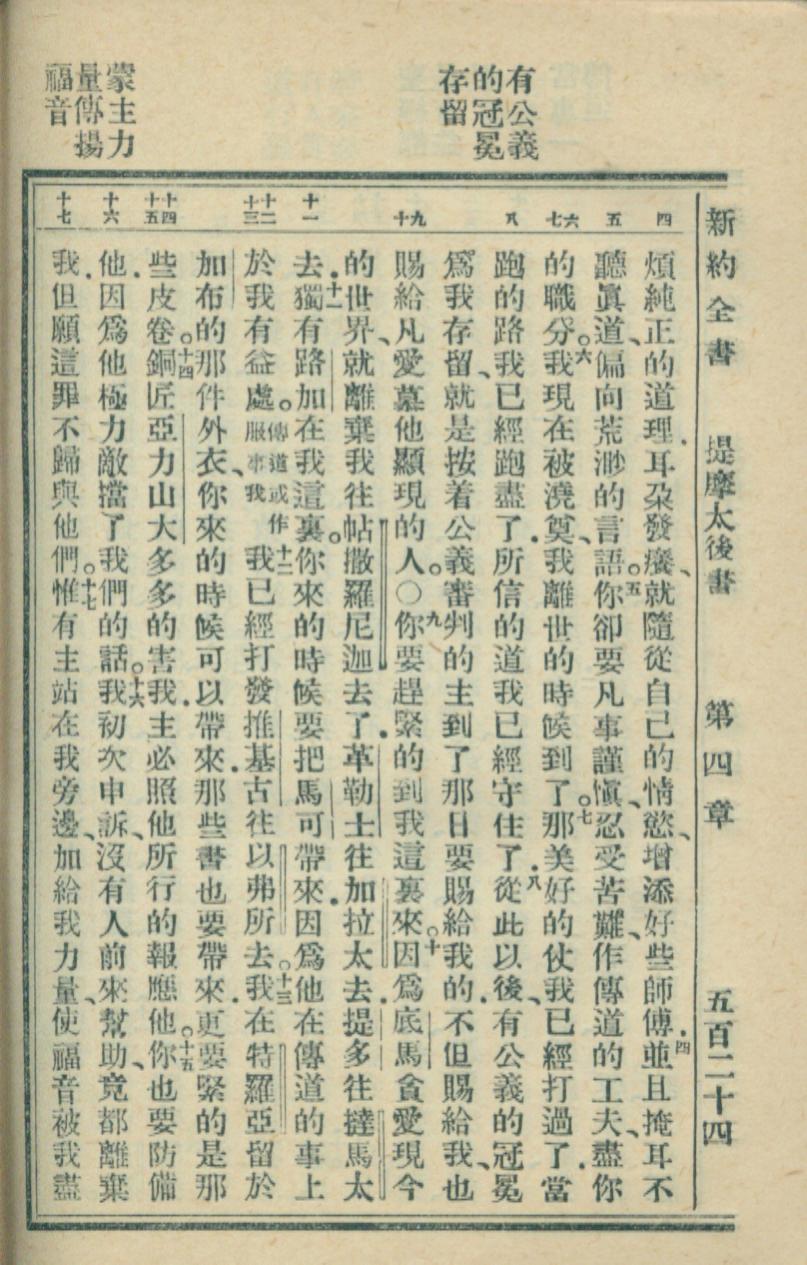 有公義
的冠冕
存留
蒙主力
量傳揚
福音
新約全書 提摩太後書 第四章 五百二十四
四
煩純正的道理．耳朶發癢、就隨從自己的情慾、增添好些師傅．四並且掩耳不
五
聽眞道、偏向荒渺的言語。五你卻要凡事謹愼、忍受苦難、作傳道的工夫、盡你
六七
的職分。六我現在被澆奠、我離世的時候到了。七那美好的仗我已經打過了．當
八
跑的路我已經跑盡了．所信的道我已經守住了．八從此以後、有公義的冠冕
爲我存留、就是按着公義審判的主到了那日要賜給我的．不但賜給我、也
九十
賜給凡愛慕他顯現的人。〇九你要趕緊的到我這裏來。十因爲底馬貪愛現今
的世界、就離棄我往帖撒羅尼迦去了．革勒士往加拉太去．提多往撻馬太
十一
去．十一獨有路加在我這裏。你來的時候要把馬可帶來．因爲他在傳道的事上
十二十三
於我有益處。傳道或作服事我十二我已經打發推基古往以弗所去。十三我在特羅亞留於
加布的那件外衣、你來的時候可以帶來．那些書也要帶來．更要緊的是那
十四十五
些皮卷。十四銅匠亞力山大多多的害我．主必照他所行的報應他。十五你也要防備
十六
他．因爲他極力敵擋了我們的話。十六我初次申訴、沒有人前來幫助、竟都離棄
十七
我．但願這罪不歸與他們。十七惟有主站在我旁邊、加給我力量、使福音被我盡